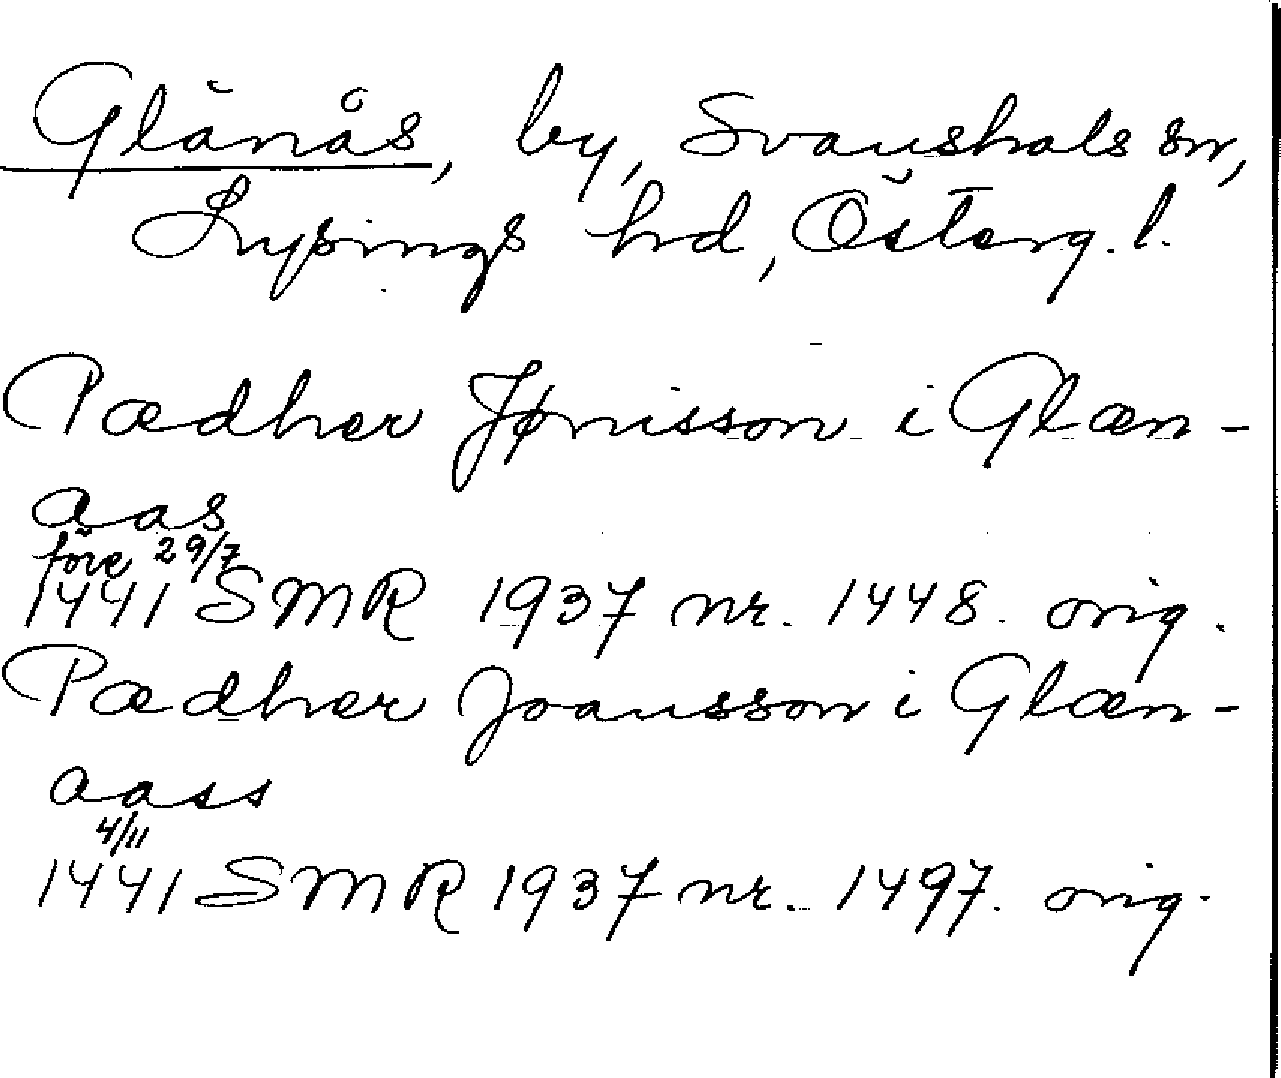 Glänås, by, Svanshals sn,
Lysings hd, Österg. l.
Pædher Jønisson i Glæn-
aas
före 29/7
1441 SMR 1937 nr. 1448. orig.
Pædher Joansson i Glæn-
aass
4/11
1441 SMR 1937 nr. 1497. orig.